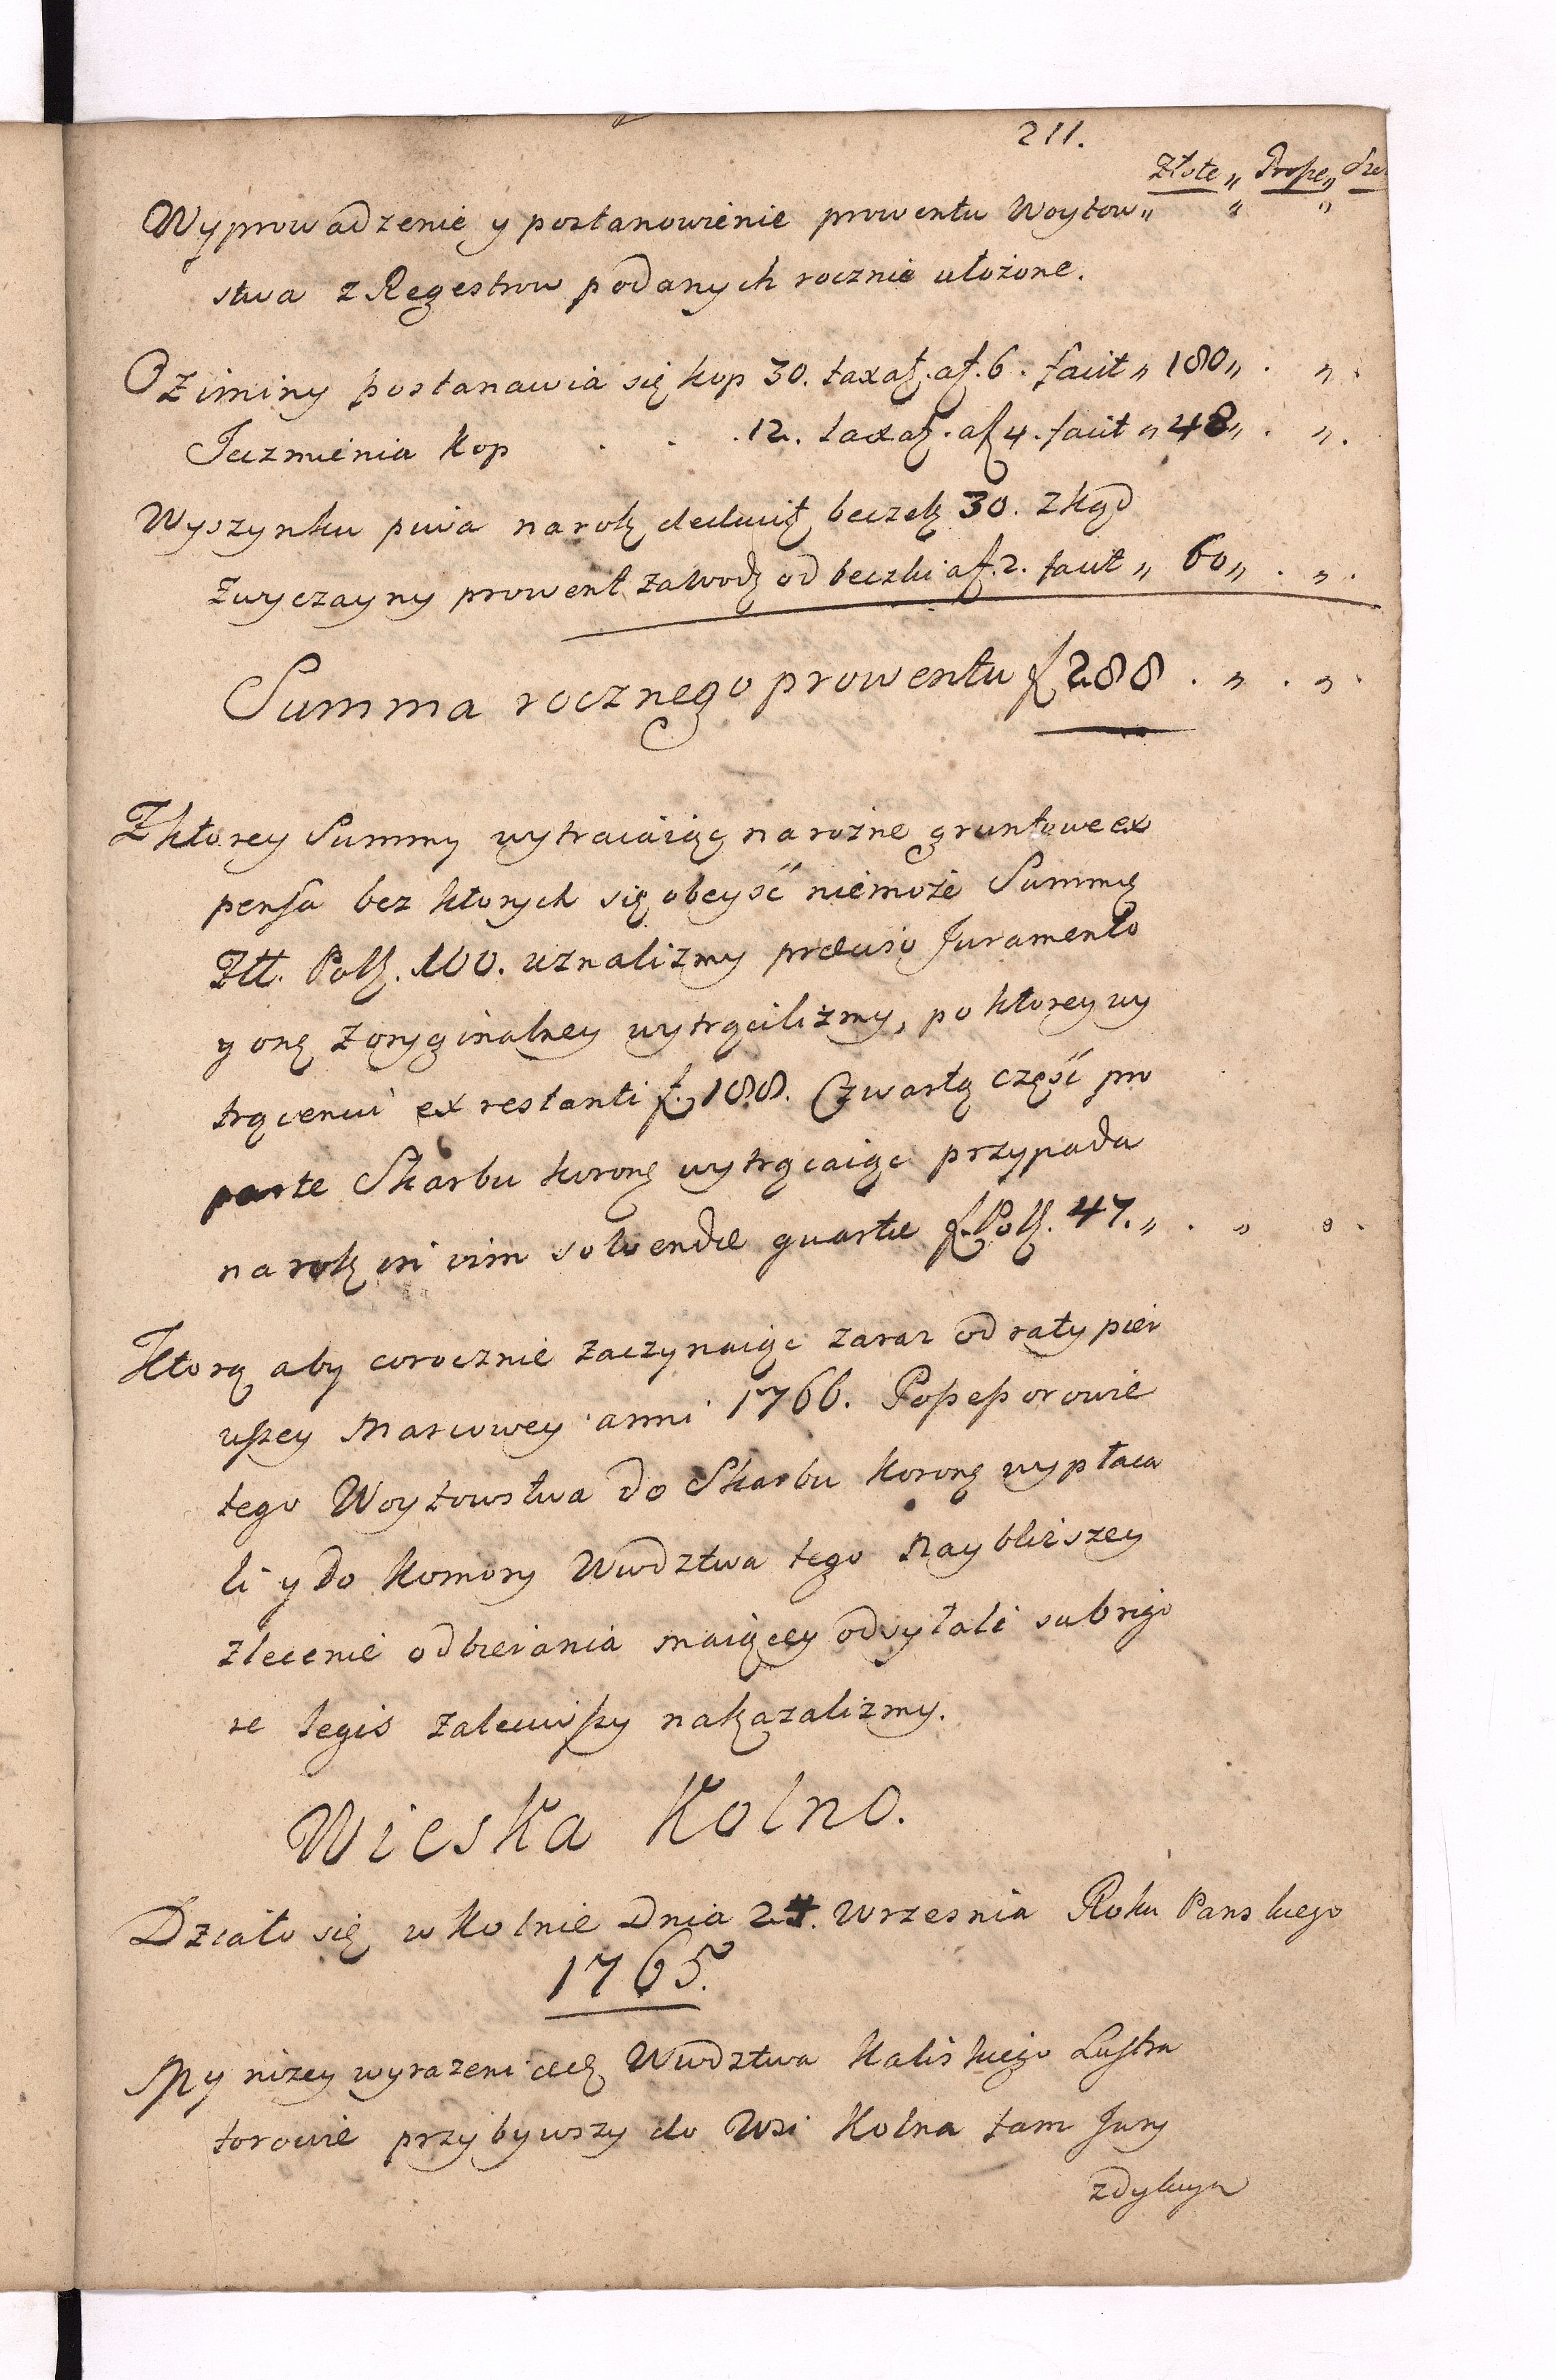 211.
Złote „ Grosze „
Wyprowadzenie y postanowienie prowentu Woytow„ „ „
stwa z Regestrow podanych rocznie ułożone.
Oziminy postanawia się kop 30. taxat. af. 6. facit „ 180 „ . „ .
Jęczmienia kop . . . 12. taxat. af 4. facit „ 48 „ . „ .
Wyszynku piwa na rok beczek 30. zkąd
zwyczayny prowent od beczki af. 2. facit „ 60 „ . „ .
Summa rocznego prowentu f 288 . „ . „ .
Z ktorey Summy wytracaiąc na rożne gruntowe ex
pensa bez ktorych się obeyść niemoże Summę
Złł. Polk. 100. uznalizmy prævio Juramento
y onę z oryginalney wytrącilizmy, po ktorey wy
trąceniu ex restanti f. 188. Czwartą część pro
parte Skarbu koron wytrącaiąc przypada
na rok in vim solvendæ quartæ f. Polk. 47. „ . „ „ .
Ktorą aby corocznie zaczynaiąc zaraz od raty pier
wszey Marcowey anni 1766. Possessorowie
tego Woytowstwa do Skarbu koron wypłaca
li y do Komory Wwdztwa tego Naybliższey
zlecenie odbierania maiącey odsyłali sub rigo
re legis zaleciwszy nakazalizmy.
Wieska Kolno.
Działo się w Kolnie Dnia 24. Wrzesnia Roku Panskiego
1765.
My niżey wyrażeni Wwdztwa Kaliskiego Lustra
torowie przybywszy do Wsi Kolna tam Jury
zdykcya